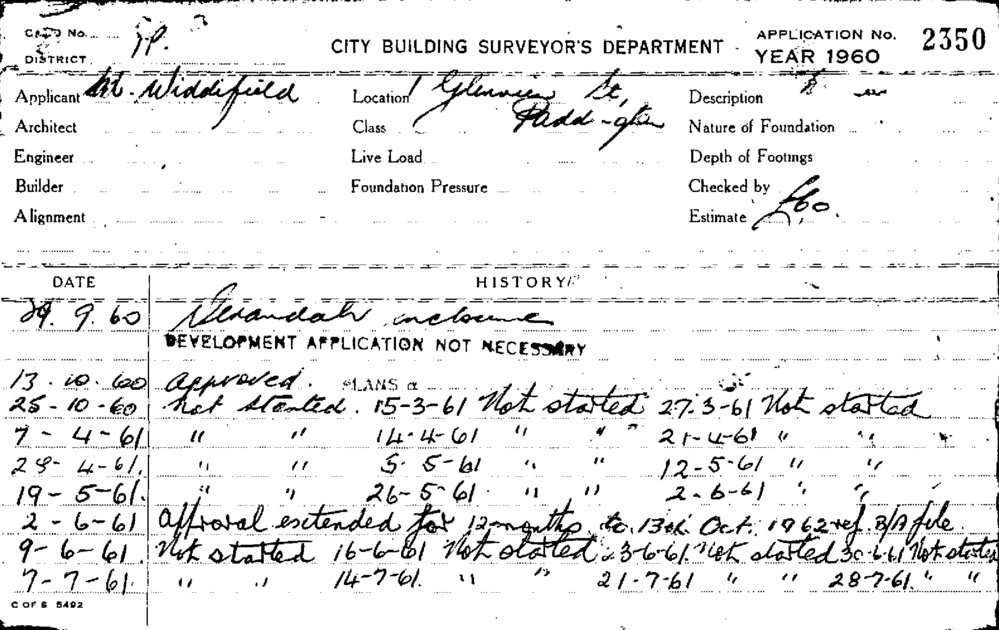 CARD No.
CITY BUILDING SURVEYOR'S DEPARTMENT
APPLICATION No. 2350
DISTRICT
YEAR 1960
Applicant M. Widdifield Location 1 Glenview St, Description
Architect Class Paddington Nature of Foundation
Engineer Live Load Depth of Footings
Builder Foundation Pressure Checked by
Alignment Estimate £60.
DATE HISTORY
29. 9. 60 Verandah enclosure
DEVELOPMENT APPLICATION NOT NECESSARY
13. 10. 60 approved. PLANS
25-10-60 Not started. 15-3-61 Not started 27.3-61 Not started
7-4-61 " " 14-4-61 " " 21-4-61 " "
28-4-61. " " 5-5-61 " " 12-5-61 " "
19-5-61. " " 26-5-61 " " 2-6-61 " "
2-6-61 Approval extended for 12 months to 13th Oct. 1962 ref. B/A file
9-6-61 Not started 16-6-61 Not started 23-6-61 Not started 30-6-61 Not started
7-7-61. " " 14-7-61. " " 21-7-61 " " 28-7-61. " "
C OF S 5492